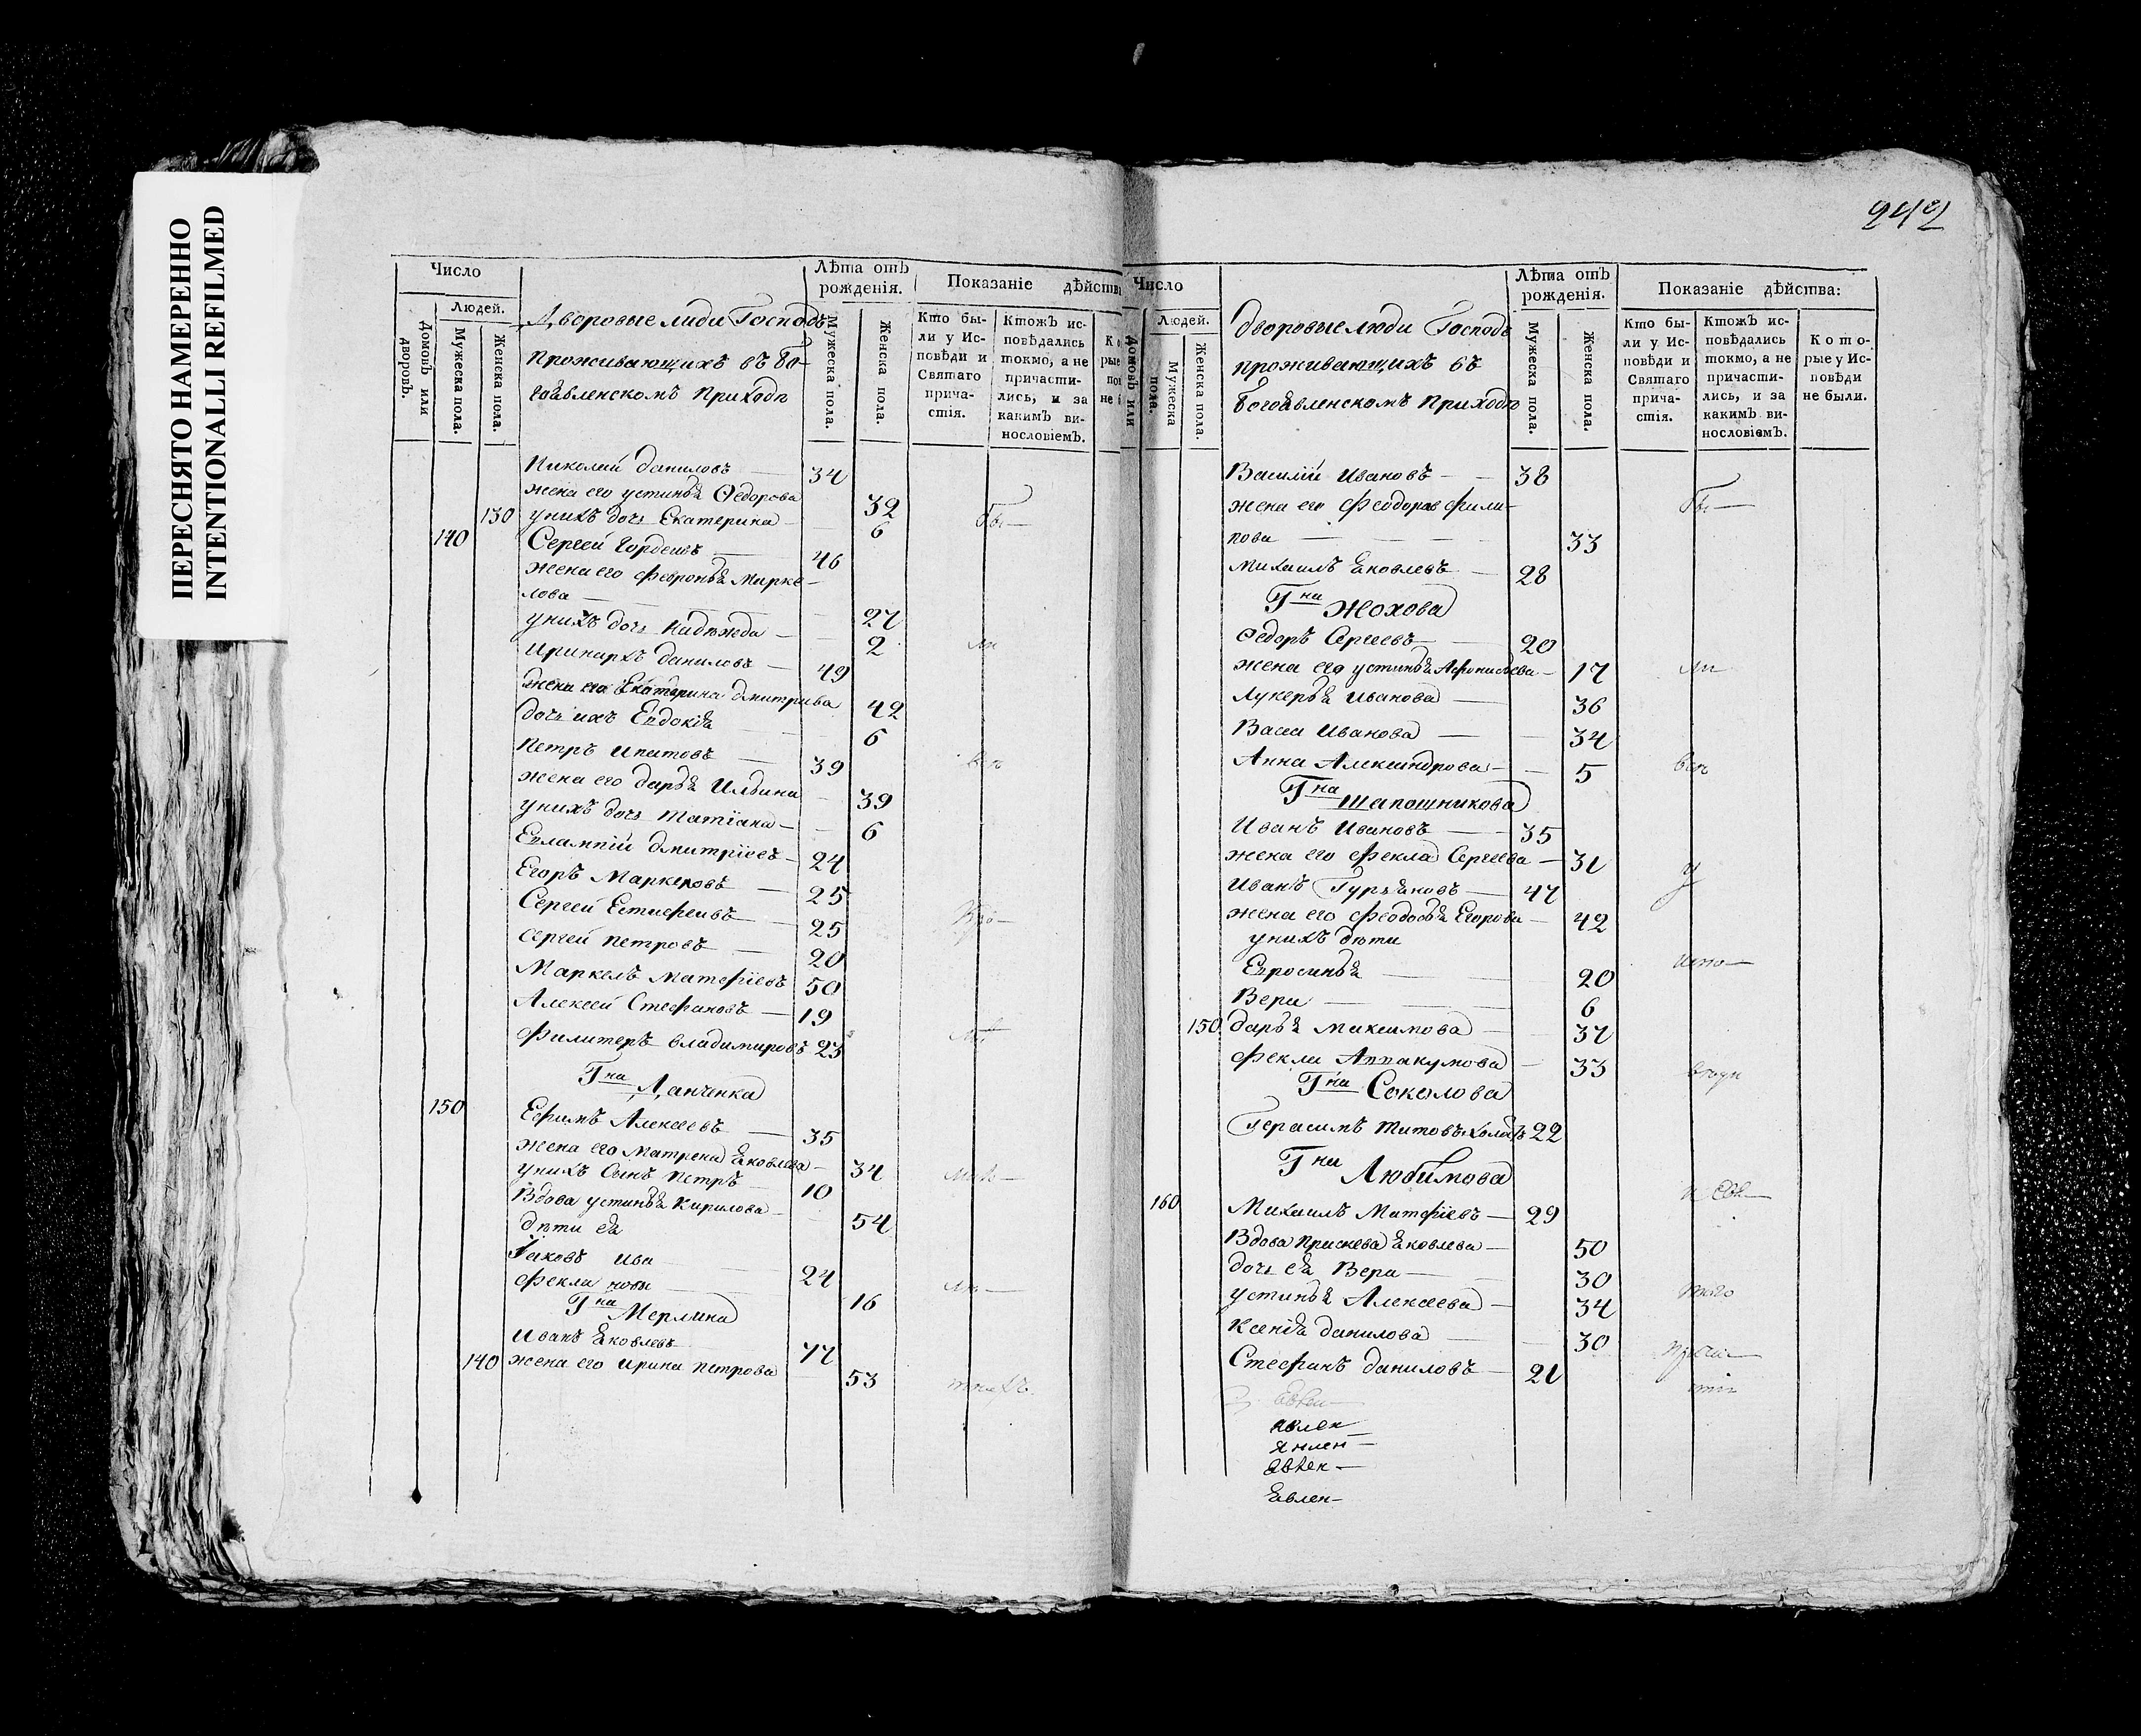 ПЕРЕСНЯТО НАМЕРЕННО
INTENTIONALLI REFILMED
Число
Людей.
Домовъ или дворовъ.
Мужеска пола.
Женска пола.
Дворовые люди Господъ
проживающихъ въ Бо-
гоявленскомъ приходѣ
Лѣта отъ рожденія.
Мужеска пола.
Женска пола.
Показаніе дѣйства
Кто бы-
ли у Ис-
повѣди и
Святаго
прича-
стія.
Ктожъ ис-
повѣдались
токмо, а не
причасти-
лись, и за
какимъ ви-
нословіемъ.
Николай Даниловъ — 34
жена его Устинья Ѳедорова 32
130 у нихъ дочь Екатерина 6
140 Сергей Гордеевъ — 46
жена его Февронья Марке-
лова — 27
у нихъ дочь Надежда — 2
Иринархъ Даниловъ — 49
жена его Екатерина Дмитриева 42
дочь ихъ Евдокия 6
Петръ Ипатовъ — 39
жена его Дарья Ильина 39
у нихъ дочь Татіана — 6
Евлампій Дмитріевъ — 24
Егоръ Маркеловъ — 25
Сергей Естифеевъ — 25
Сергей Петровъ — 20
Маркелъ Матфіевъ 50
Алексей Стефановъ — 19
Филитеръ Владимировъ 23
Гна Данченка
150 Ефимъ Алексеевъ — 35
жена его Матрена Яковлева — 34
у нихъ сынъ Петръ 10
Вдова Устинья Кирилова 54
дѣти ея
Іаковъ Ива 24
Фекла новы 16
Гна Мерлина
Иванъ Яковлевъ 77
140 жена его Ирина Петрова 53
242
Число
Людей.
Домовъ или
Мужеска пола.
Женска пола.
Дворовые люди Господъ
проживающихъ въ
Богоявленскомъ приходѣ
Лѣта отъ рожденія.
Мужеска пола.
Женска пола.
Показаніе дѣйства:
Кто бы-
ли у Ис-
повѣди и
Святаго
прича-
стія.
Ктожъ ис-
повѣдались
токмо, а не
причасти-
лись, и за
какимъ ви-
нословіемъ.
Кото-
рые у Ис-
повѣди
не были.
Василій Ивановъ — 38
жена его Феодора Фили-
пова — 33
Михаилъ Яковлевъ — 28
Гна Жохова
Ѳедоръ Сергеевъ — 20
жена его Устинья Афонасьева — 17
Лукерья Иванова — 36
Васса Иванова — 34
Анна Александрова — 5
Гна Шапошникова
Иванъ Ивановъ — 35
жена его Фекла Сергеева — 31
Иванъ Гурьяновъ — 47
жена его Феодосья Егорова — 42
у нихъ дѣти
Евросинья — 20
Вера — 6
150 Дарья Максимова — 37
Фекла Аввакумова — 33
Гна Соколова
Герасимъ Титовъ 22
Гна Любимова
160 Михаилъ Матфіевъ — 29
Вдова Прискева Яковлева — 50
дочь ея Вера — 30
Устинья Алексеева — 34
Ксенія Данилова — 30
Стефанъ Даниловъ — 21
явлен
явлен —
явлен —
явлен —